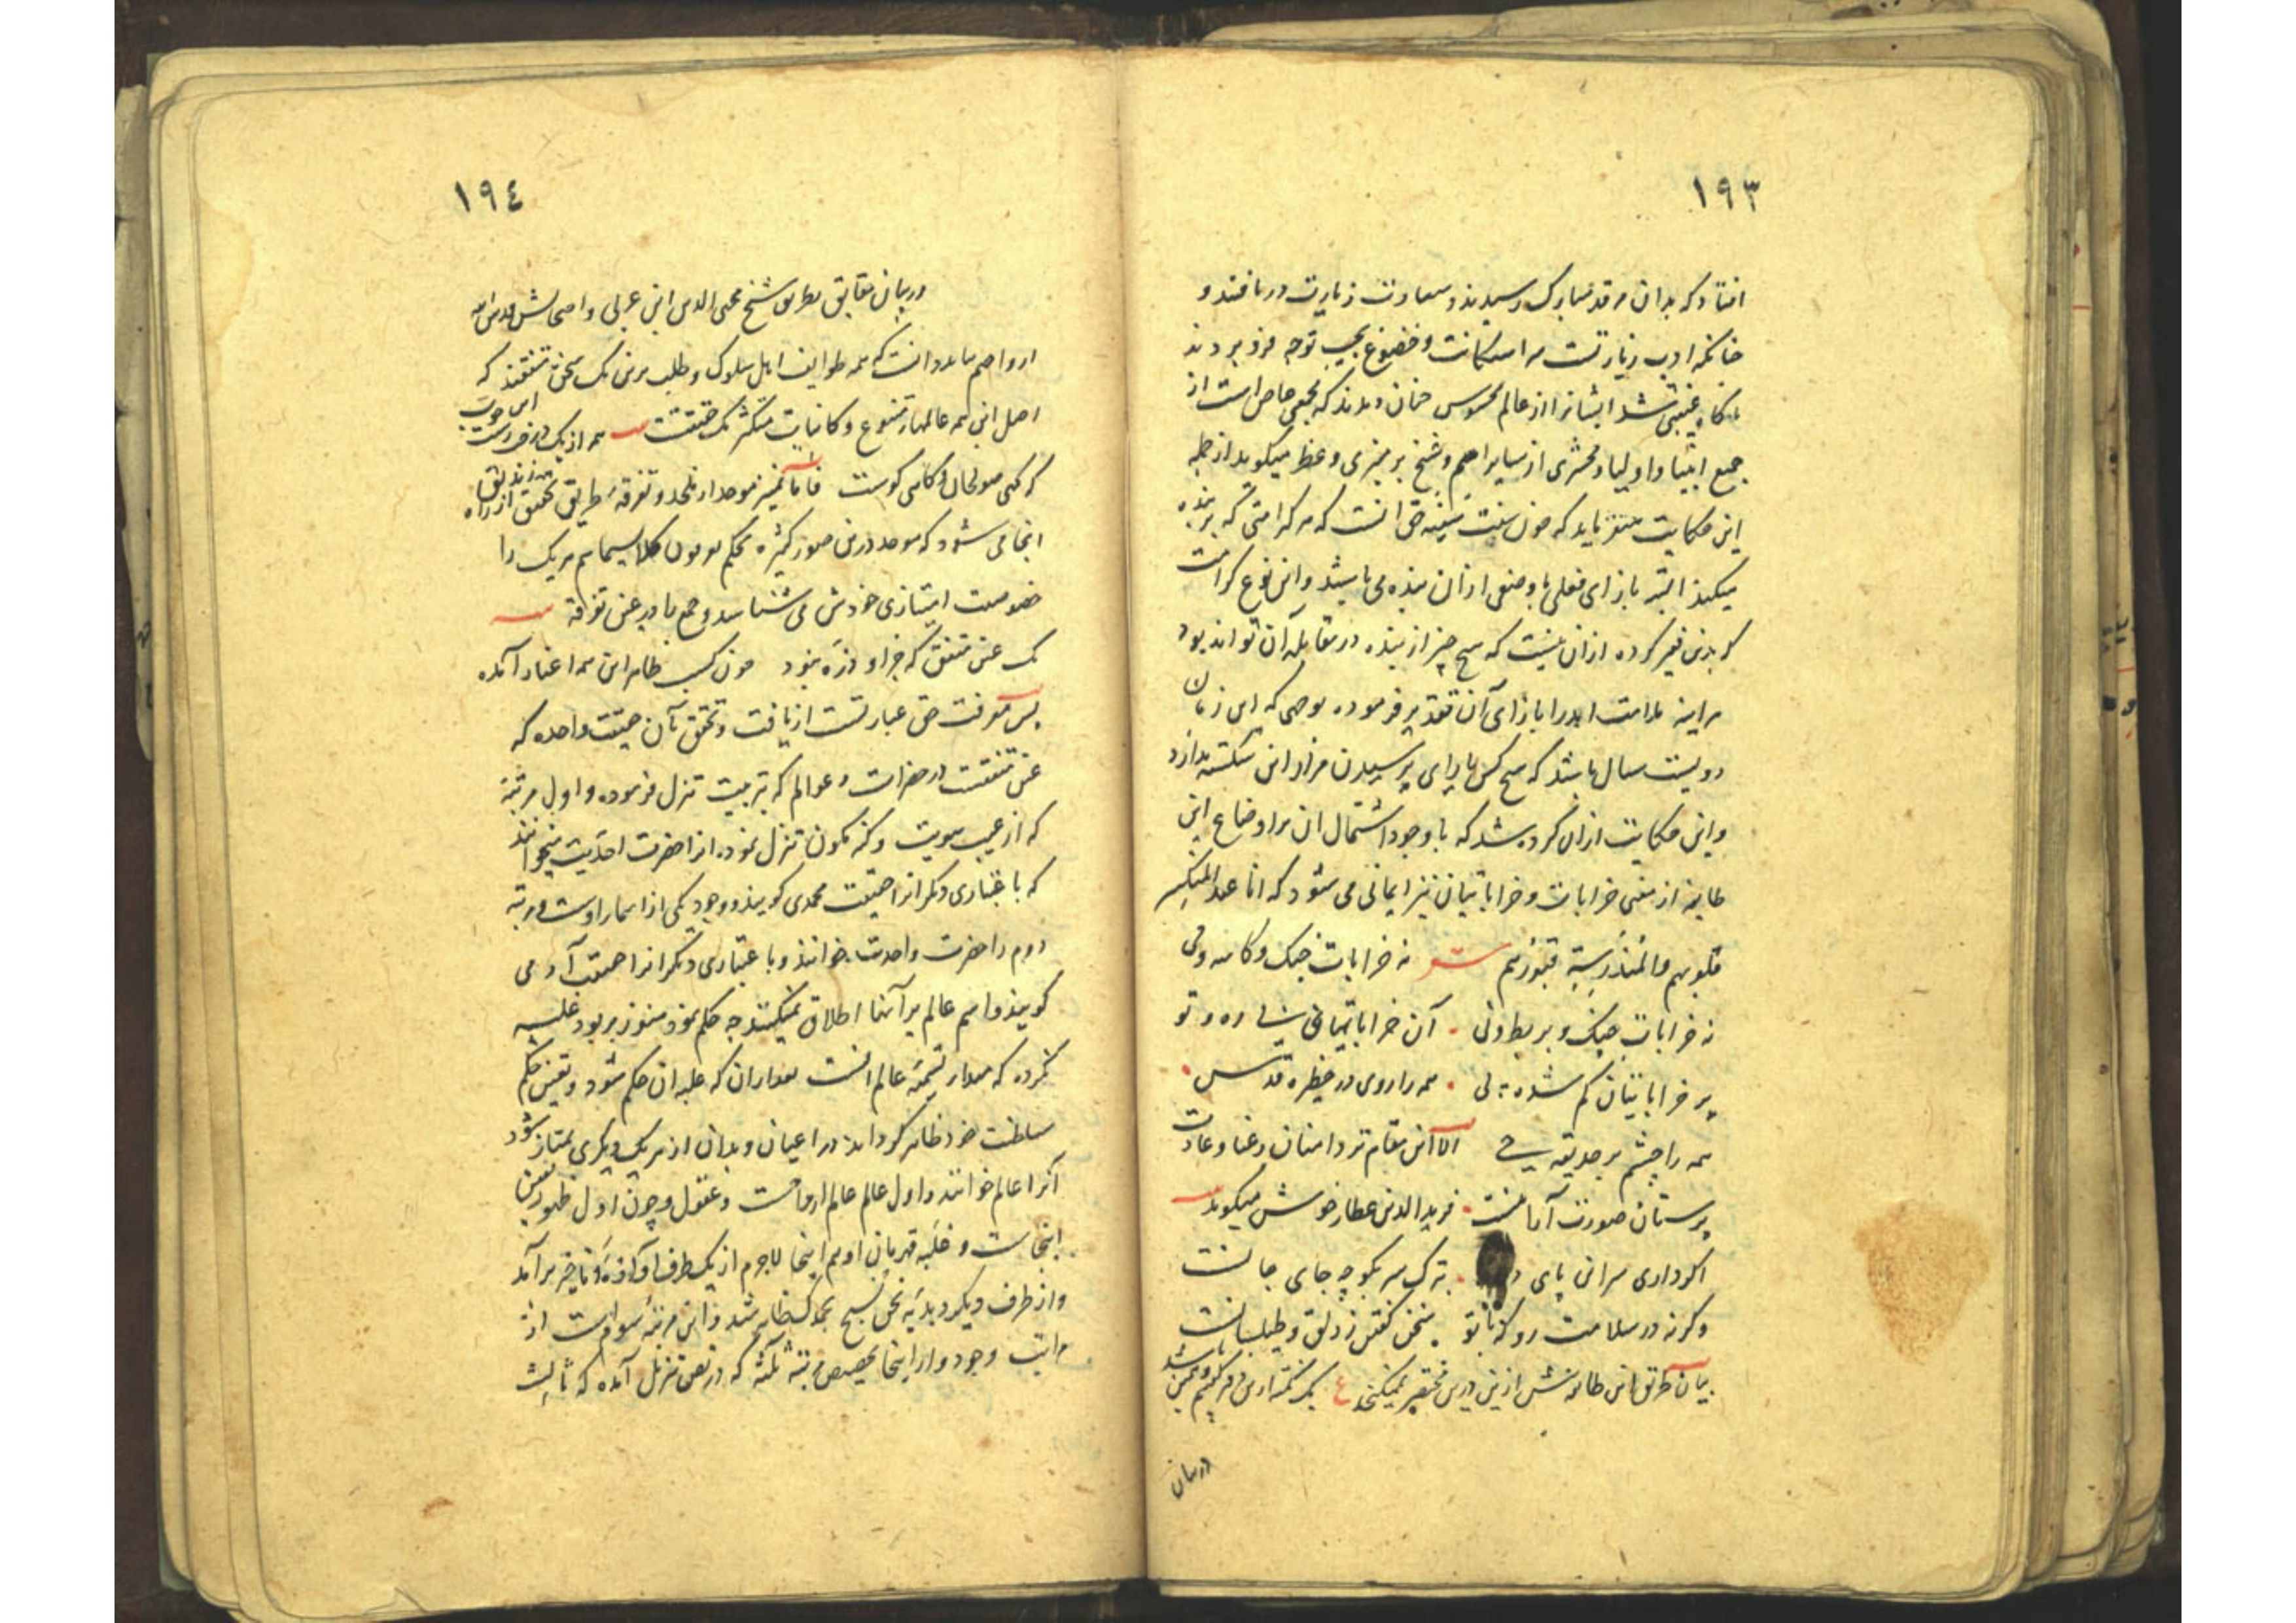 ١٩٣
افتاد که بدان مرقد مبارک رسیدند و سعادت زیارت دریافتند و
چنانکه ادب زیارتست به استکانت و خضوع بجیب توجه فرو بردند
ناگاه غیبتی شد ایشانرا از عالم محسوس چنان دیدند که مجمعی حاصل است از
جمیع انبیا و اولیا و محشری از سایر امم و شیخ بر منبری وعظ میگوید از جمله
این حکایت میفرماید که چون سنت سنیه حق آنست که هر کرامتی که بر بنده
میکند البته بازای فعلی یا وصفی از آن بنده می باشد و این نوع کرامت
که بدین فقیر کرده از آن نیست که هیچ چیز از بنده در مقابله آن تواند بود
هر آینه ملامت ابد را بازای آن تقدیر فرموده بوجهی که این زمان
دویست سال باشد که هیچ کس یارای پرسیدن مزار این شکسته ندارد
و این حکایت از آن کرده شد که با وجود اشتمال آن بر اوضاع این
طایفه از معنی خرابات و خراباتیان نیز ایمائی می شود که انا عند المنکسرة
قلوبهم والمندرسة قبورهم شعر نه خرابات خیک و کاسه و می
نه خرابات چنک و بربط و نی آن خراباتیانی ره و تو
پر خراباتیان گم شده پی همه را روی در حظیره قدس
همه را چشم بر حدیقه حی الا این مقام تر دامنان رعنا و عادت
پرستان صورت آرا نیست فرید الدین عطار خوش میگوید
اگر داری سر این پای به ترک سر بگو چه جای جانست
وگرنه در سلامت رو که با تو سخن گفتن ز دلق و طیلسانست
بیان طریق این طایفه بیش ازین درین مختصر نمیگنجد ع یک نکته ازین دفتر گفتیم و همین باشد
در بیان
١٩٤
در بیان حقایق بطریق شیخ محیی الدین ابن عربی و اصحابش قدس الله
ارواحهم بباید دانست که همه طوایف اهل سلوک و طلب برین یک سخن متفقند که
اصل این همه عالمهای متنوع و کاینات متکثر یک حقیقتست همه از یک در فرست این حرب
گر گهی صولجان و گاهی گوست فاما تمییز موحد از ملحد و تفرقه طریق تحقیق از راه زندیق
اینجا می شود که موحد درین صور کثیره بحکم یعرفون کلا بسیماهم هر یک را
خصوصیت امتیازی خودش می شناسد و جمع ما در عین تفرقه
یک عین متفق که جز او ذره نبود چون کسب ظاهر این همه اغیار آمده
پس معرفت حق عبارتست از یافت و تحقق بآن حقیقت واحده که
عین متفقست در حضرات و عوالم که بترتیب تنزل فرموده و اول مرتبه
که از غیب هویت و کنه مکون تنزل نموده انرا حضرت احدیت میخوانند
که باعتباری دیگر انرا حقیقت محمدی گویند و وجود یکی از اسماء اوست و مرتبه
دوم را حضرت واحدیت خوانند و باعتباری دیگر انرا حقیقت آدمی
گویند و اسم عالم بر آنها اطلاق نمیکنند چه حکم نمود هنوز بر بود غلبه
نکرده که مدار تسمیه عالم آنست بعد از آن که غلبه آن حکم شود و تعین حکم
سلطنت خود ظاهر گرداند در اعیان و بدان از هر یک دیگری ممتاز شود
آنرا عالم خوانند و اول عالم عالم ارواحست و عقول و چون اول ظهور تعین
اینجاست و غلبه قهرمان او هم اینجا لاجرم از یک طرف آوازه انا خیر برآمد
و از طرف دیگر دبدبه نحن نسبح بحمدک ظاهر شد و این مرتبه سوم است از
مراتب وجود و از اینجا تخصیص مرتبه ثلثه که در نص تنزیل آمده که ثالث